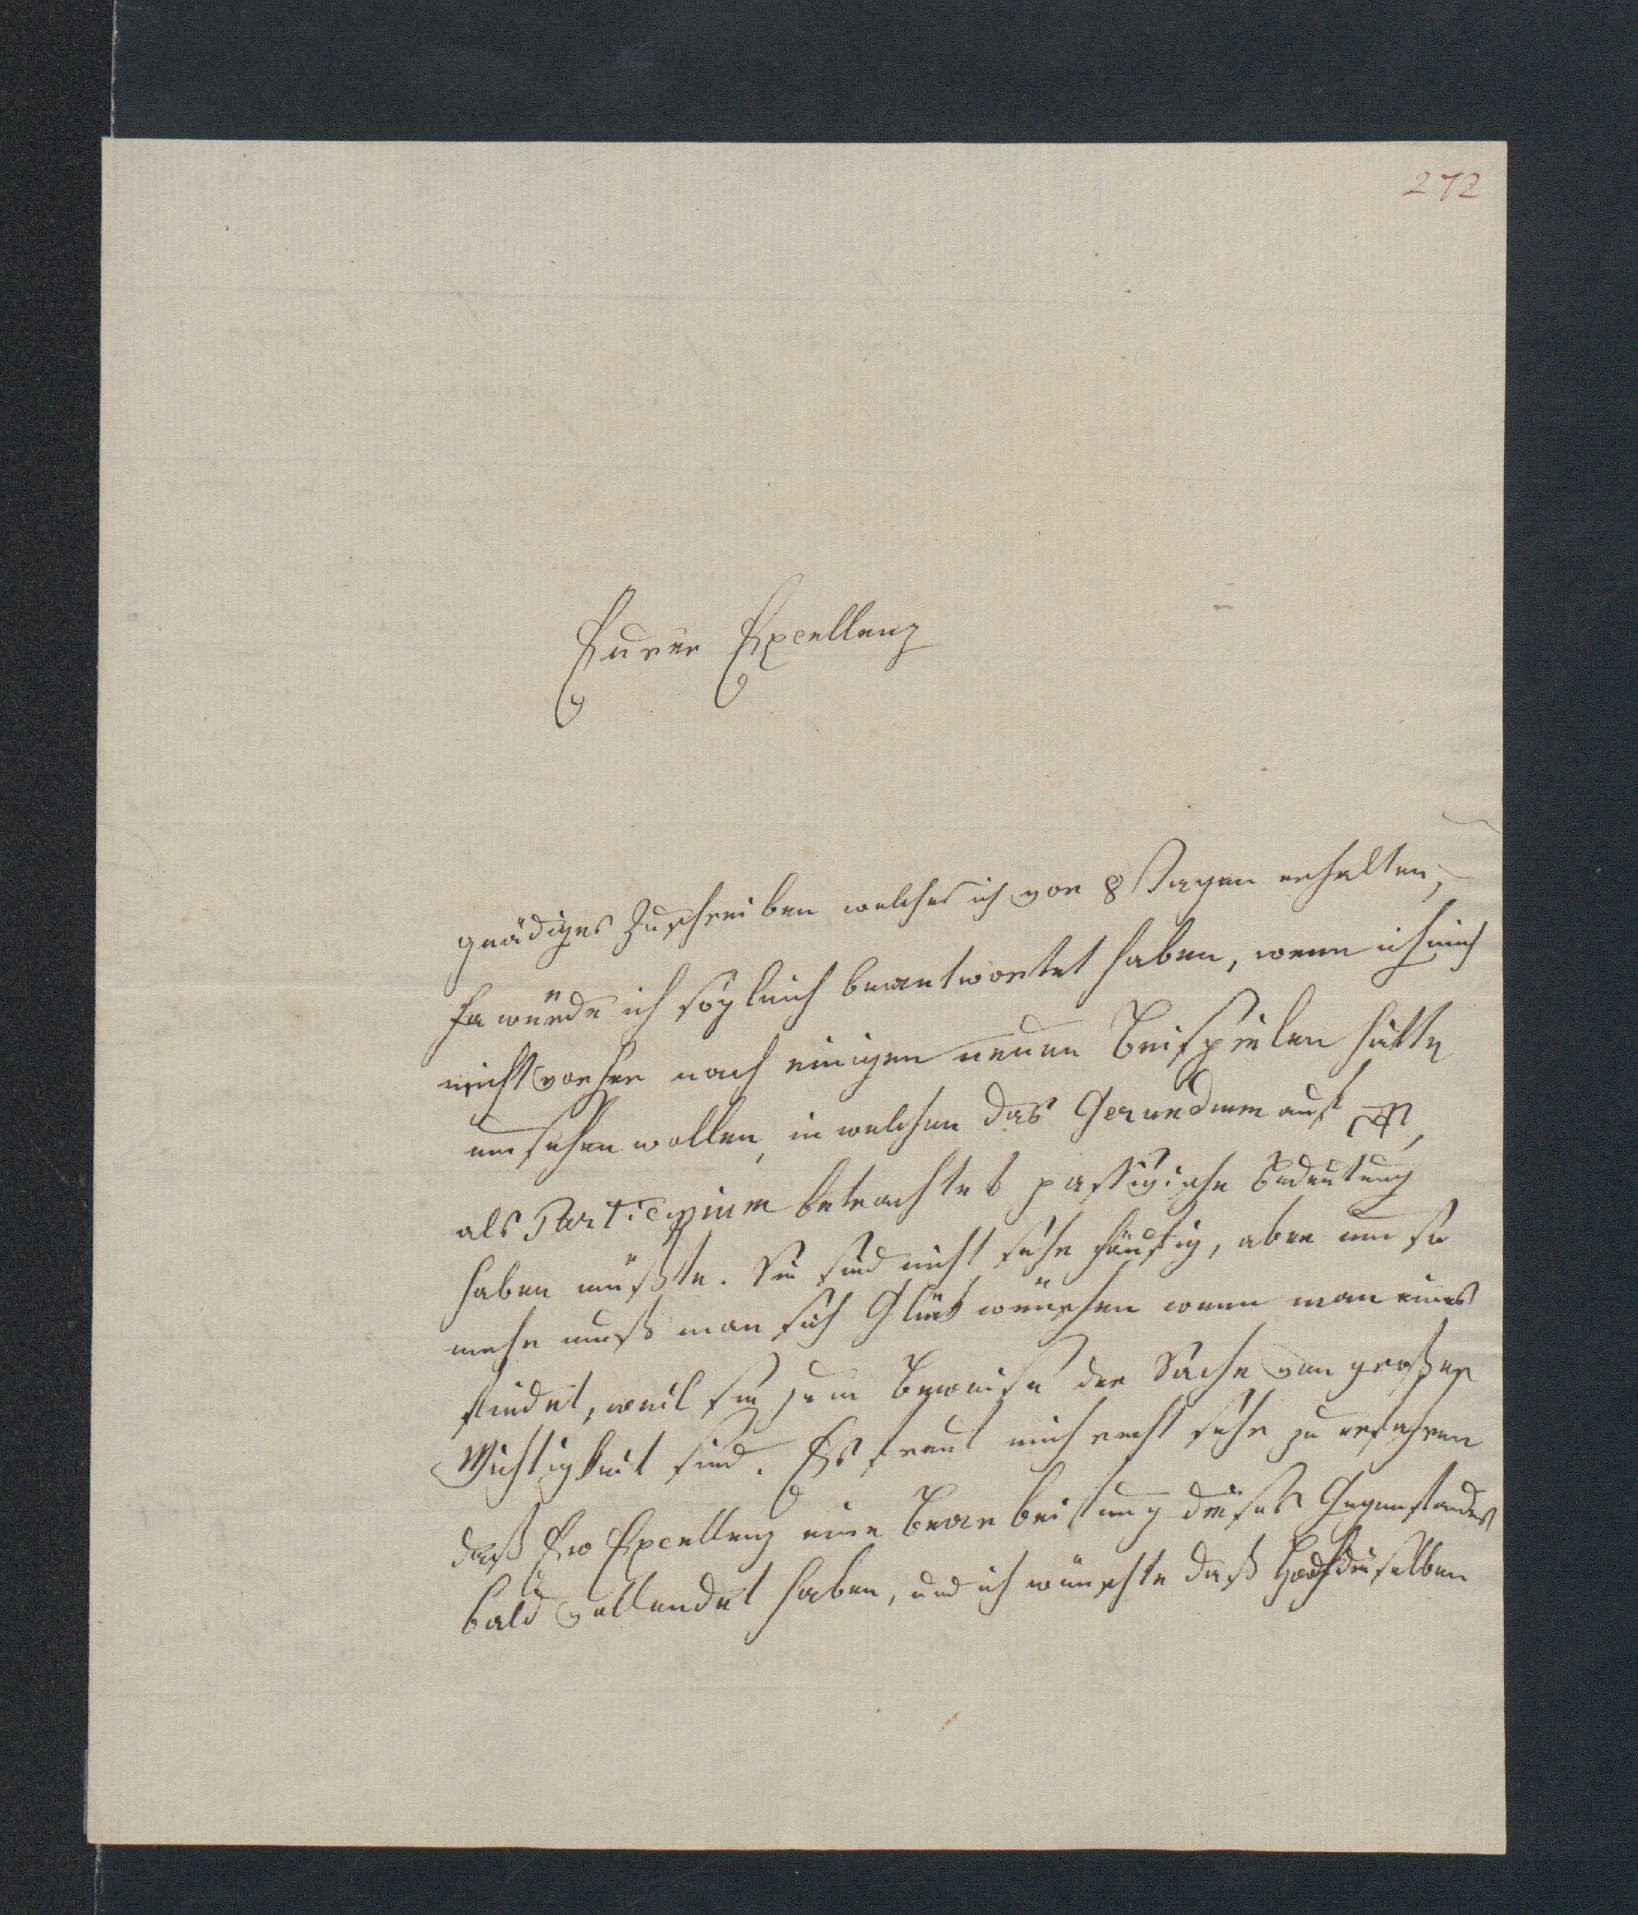 272
Eurer Excellenz
gnädiges Zuschreiben welches ich vor 8 Tagen erhalten,
würde ich sogleich beantwortet haben, wenn ich mich
nicht vorher nach einigen neuen Beispielen hätte
umsehen wollen, in welchen das Gerundium auf
als Participium betrachtet passivische Bedeutung
haben müßte. Sie sind nicht sehr häufig, aber um so
mehr muß man sich Glück wünschen wenn man eines
findet, weil sie zum Beweise der Sache von großer
Wichtigkeit sind. Es freut mich recht sehr zu erfahren
daß Ew Excellenz eine Bearbeitung dieses Gegenstandes
bald vollendet haben, und ich wünschte daß Hochdieselben